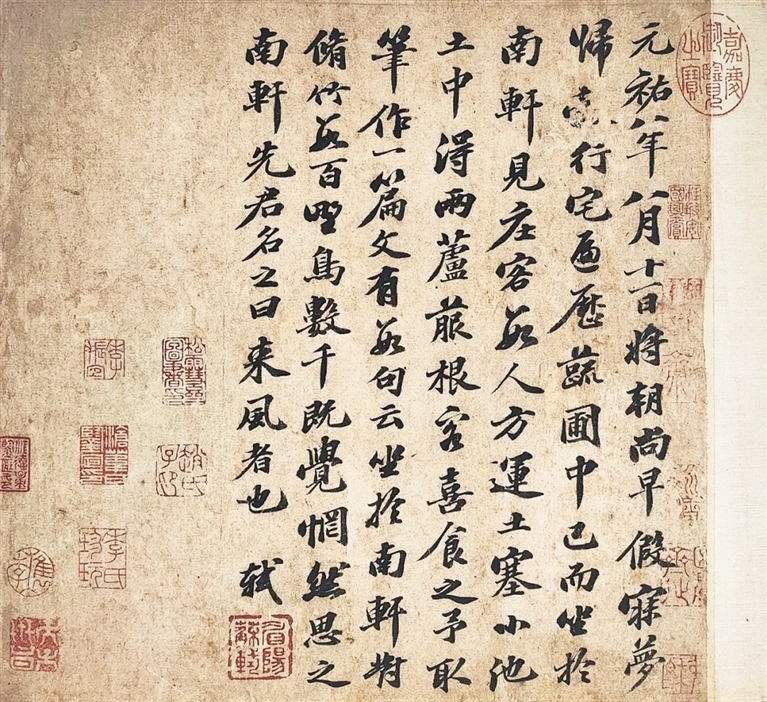 嘉慶御覽之寶
元祐八年八月十一日將朝尚早假寐夢
歸行宅遍歷蔬圃中已而坐於
南軒見庄客數人方運土塞小池
土中得兩蘆菔根客喜食之予取
筆作一篇文有數句云坐於南軒對
脩竹數百野鳥數千既覺惘然思之
南軒先君名之曰來風者也 軾
眉陽蘇軾